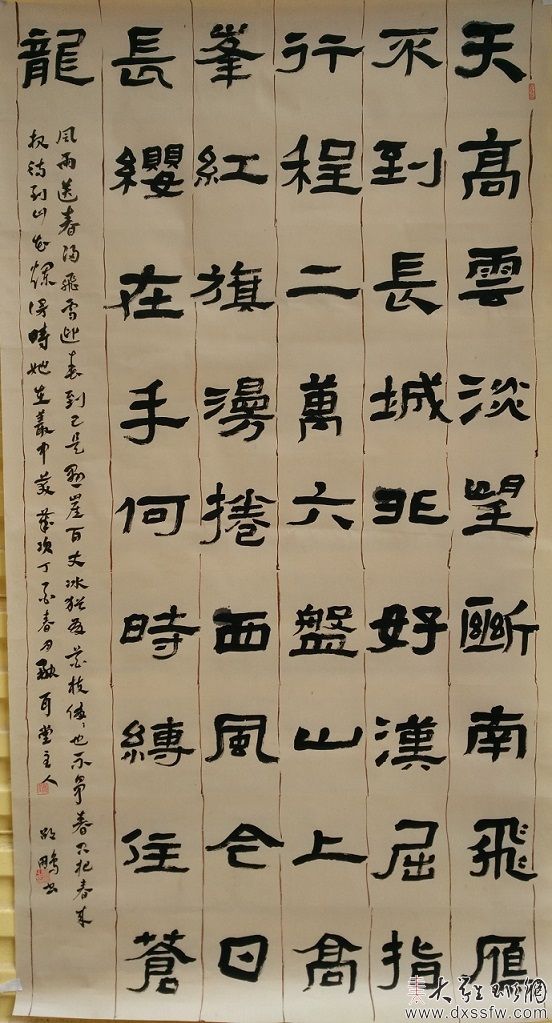 天高雲淡望斷南飛雁
不到長城非好漢屈指
行程二萬六盤山上高
峯紅旗漫捲西風今日
長纓在手何時縛住蒼
龍
風雨送春歸飛雪迎春到已是懸崖百丈冰猶有花枝俏也不爭春只把春來
報待到山花爛漫時她在叢中笑歲次丁酉春月耳堂主人
鵬書
www.dxssfw.com